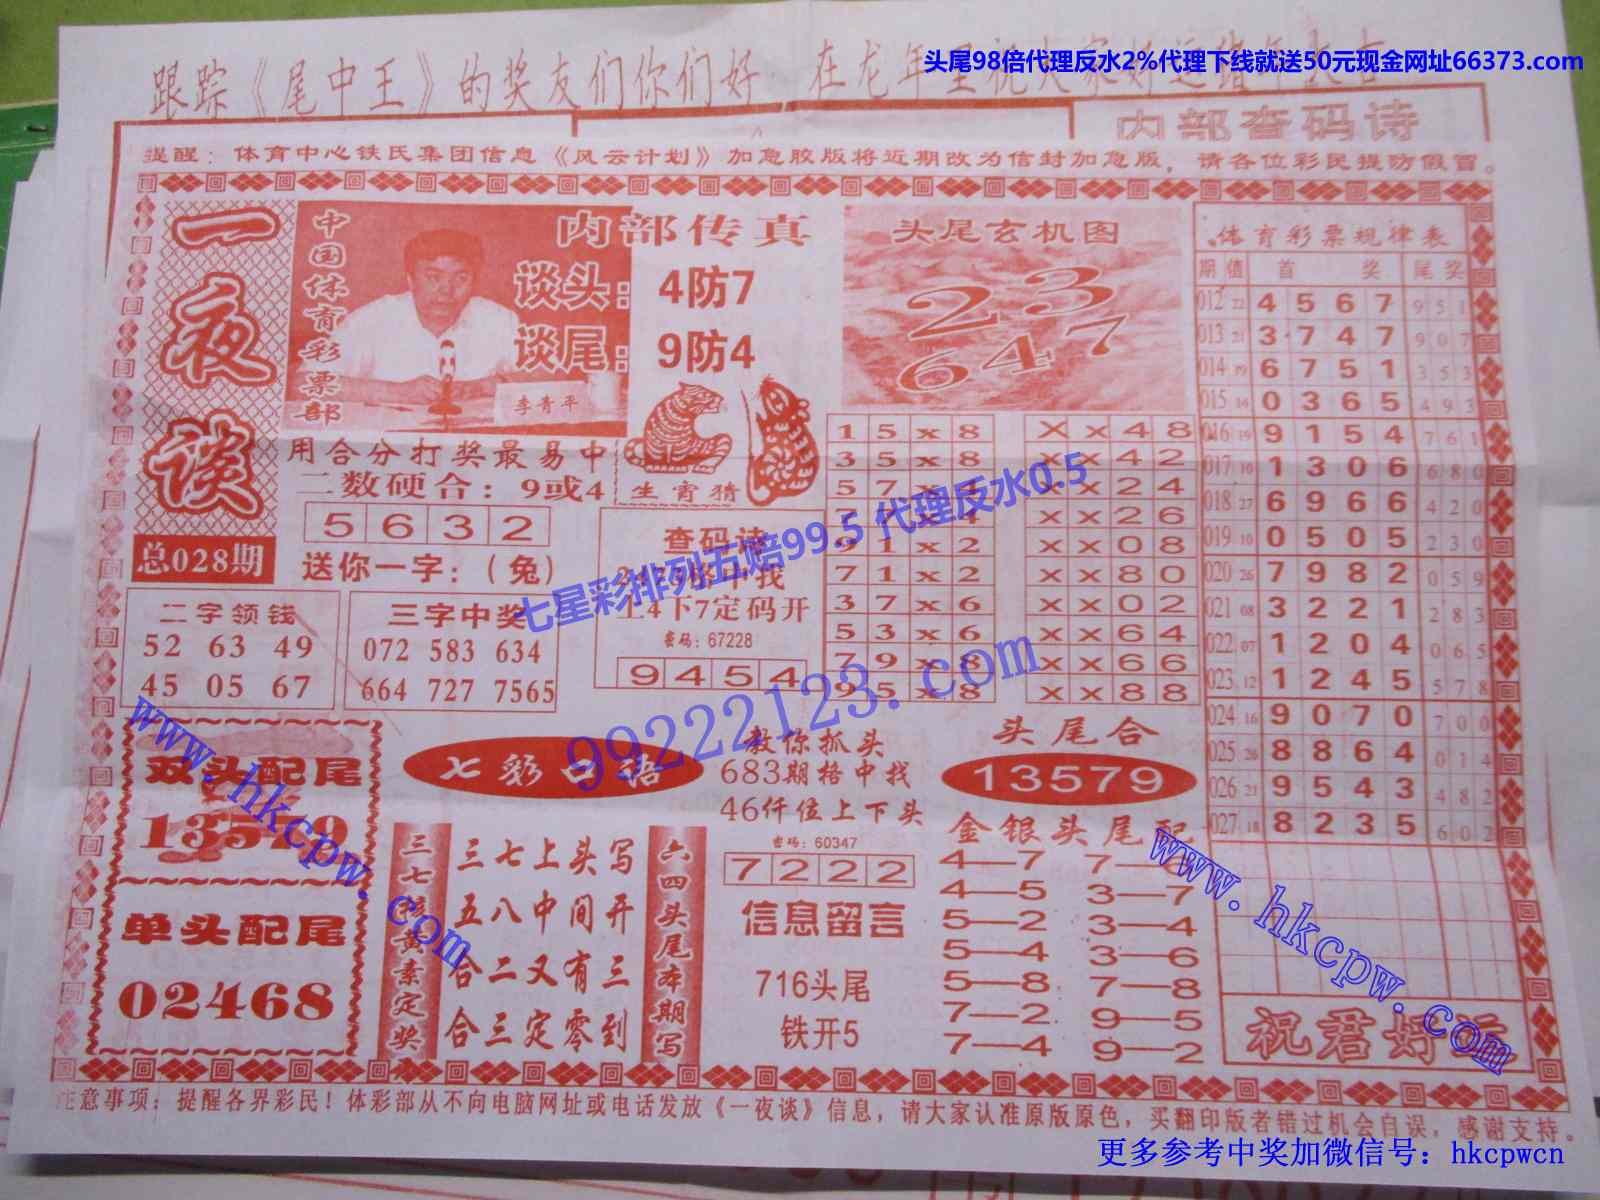 头尾98倍代理反水2%代理下线就送50元现金网址66373.com
跟踪《尾中王》的奖友们你们好
内部查码诗
提醒：体育中心铁民集团信息《风云计划》加急胶版将近期改为信封加急版，请各位彩民提防假冒。
一夜谈
总028期
中国体育彩票部
内部传真
谈头：4防7
谈尾：9防4
李青平
用合分打奖最易中
二数硬合：9或4
生宵猜
5 6 3 2
送你一字：（兔）
二字领钱
52 63 49
45 05 67
三字中奖
072 583 634
664 727 7565
查码诗
上4下7定码开
密码：67228
9 4 5 4
头尾玄机图
23
647
1 5 x 8
3 5 x 8
9 1 x 2
7 1 x 2
3 7 x 6
5 3 x 6
7 9 x 8
9 5 x 8
X x 4 8
x x 4 2
x x 2 4
x x 2 6
x x 0 8
x x 8 0
x x 0 2
x x 6 4
x x 6 6
x x 8 8
体育彩票规律表
期 值 首 奖 尾 奖
012 22 4 5 6 7 9 5 1
013 21 3 7 4 7 9 0 7
014 19 6 7 5 1 3 5 3
015 14 0 3 6 5 4 9 3
016 19 9 1 5 4 7 6 1
017 10 1 3 0 6 6 8 0
018 27 6 9 6 6 4 2 0
019 10 0 5 0 5 2 3 0
020 26 7 9 8 2 0 5 9
021 08 3 2 2 1 2 8 3
022 07 1 2 0 4 0 6 5
023 12 1 2 4 5 5 7 8
024 16 9 0 7 0 7 0 0
025 26 8 8 6 4 0 1 4
026 21 9 5 4 3 4 8 2
027 18 8 2 3 5 6 0 2
祝君好运
双头配尾
13579
单头配尾
02468
七彩口语
三七上头写
五八中间开
合二又有三
合三定零到
六四头尾本期写
教你抓头
683期格中找
46仟位上下头
密码：60347
7 2 2 2
信息留言
716头尾
铁开5
头尾合
13579
金银头尾配
4—7
4—5 3—7
5—2 3—4
5—4 3—6
5—8 7—8
7—2 9—5
7—4 9—2
七星彩排列五赔99.5 代理反水0.5
99222123.com
www.hkcpw.com
www.hkcpw.com
意事项：提醒各界彩民！体彩部从不向电脑网址或电话发放《一夜谈》信息，请大家认准原版原色，买翻印版者错过机会自误，感谢支持。
更多参考中奖加微信号：hkcpwcn